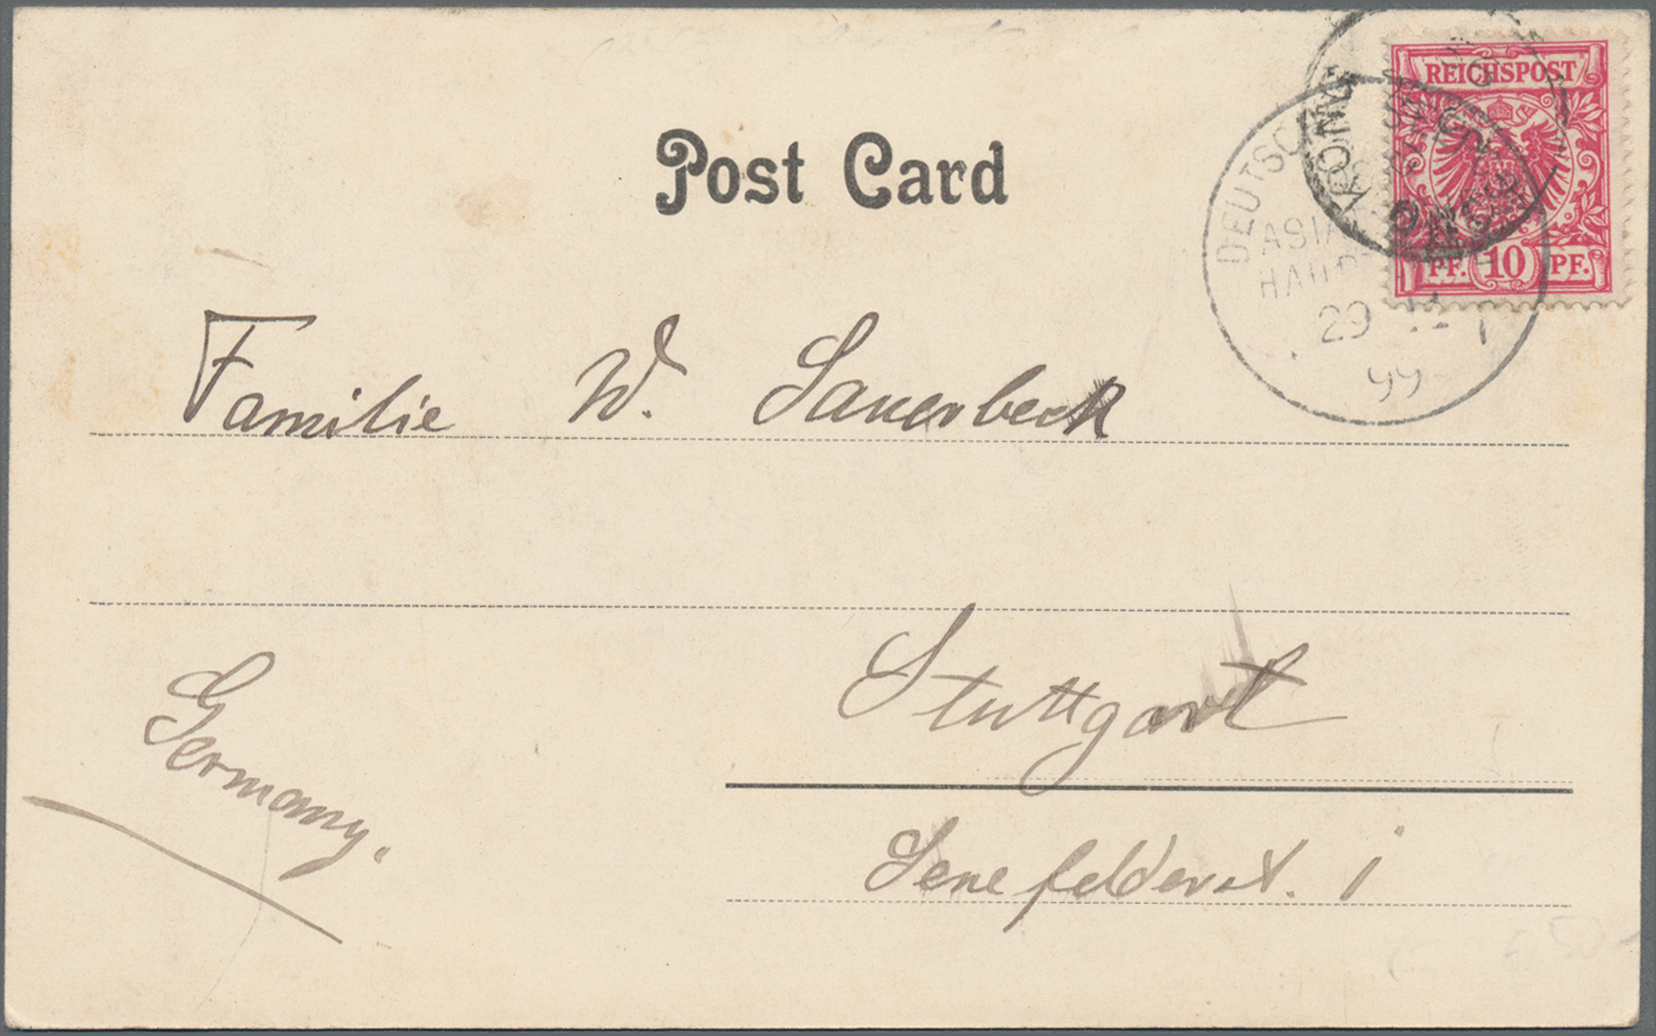 REICHSPOST
PF. 10 PF.
DEUTSCH
ASIA
HAUP
29
99
Post Card
Familie W. Sauerbeck
Stuttgart
Senefelderst. 1
Germany.